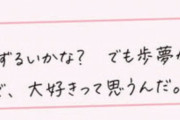 ずるいかな？ でも歩夢か
で、大好きって思うんだ。